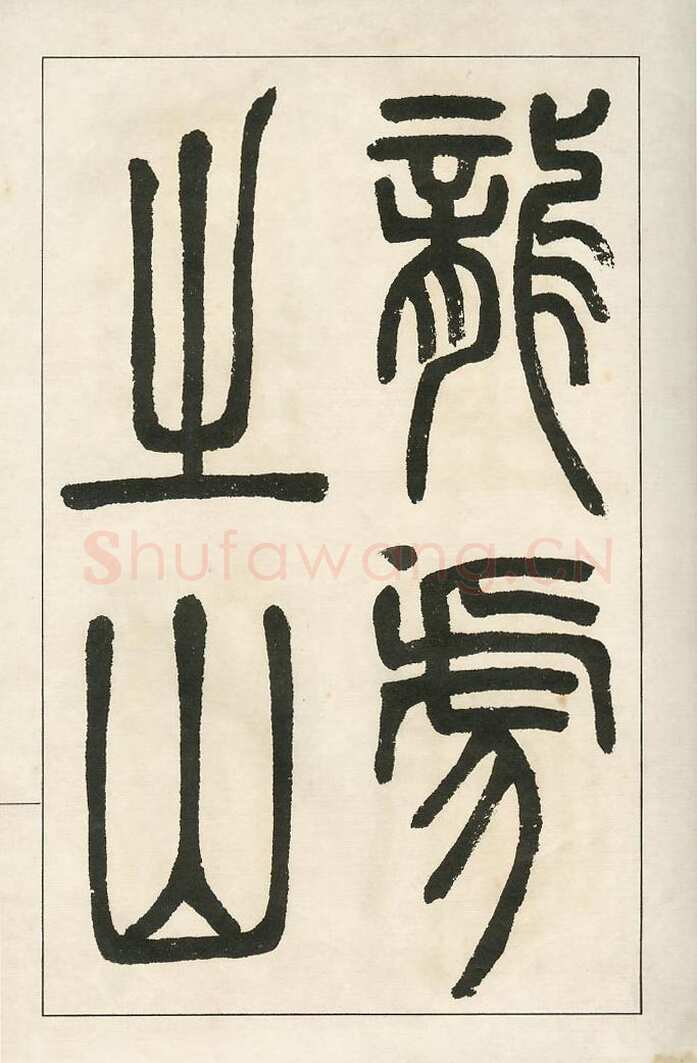 龍虎
之山
Shufawang.CN